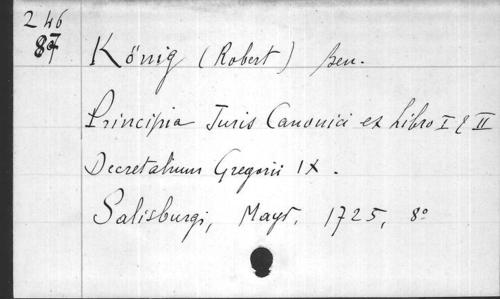 246
87
König (Robert) ben.
Principia Juris Canonici ex Libro I & II
Decretalium Gregorii IX.
Salisburgi, Mayr. 1725, 8º